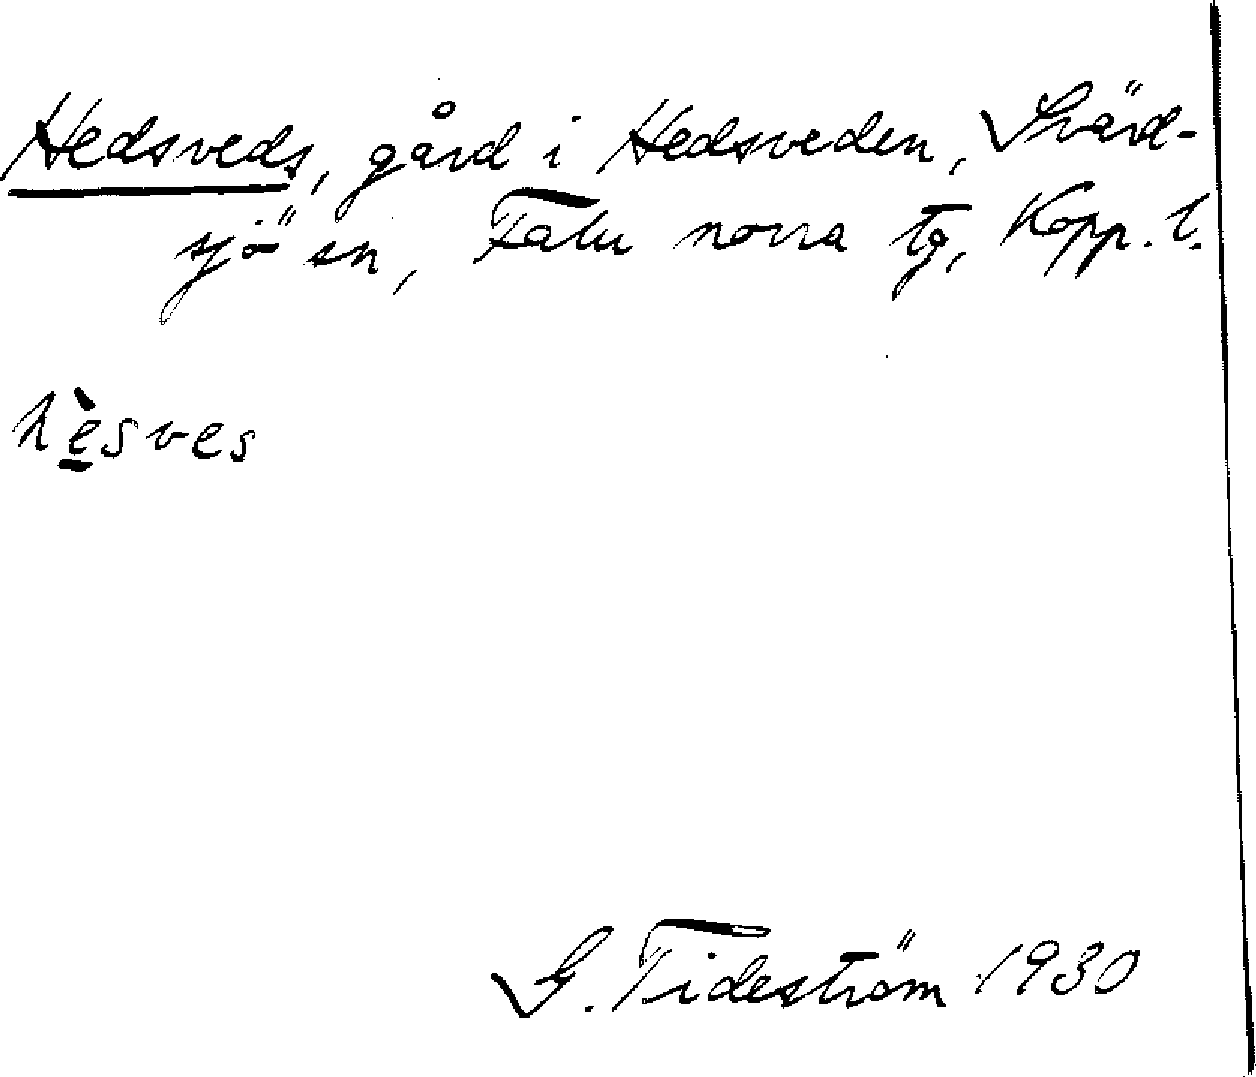 Hedsveds, gård i Hedsveden, Svärd-
sjö sn, Falu norra tg, Kopp. l.
hè̱sves
G. Tideström 1930